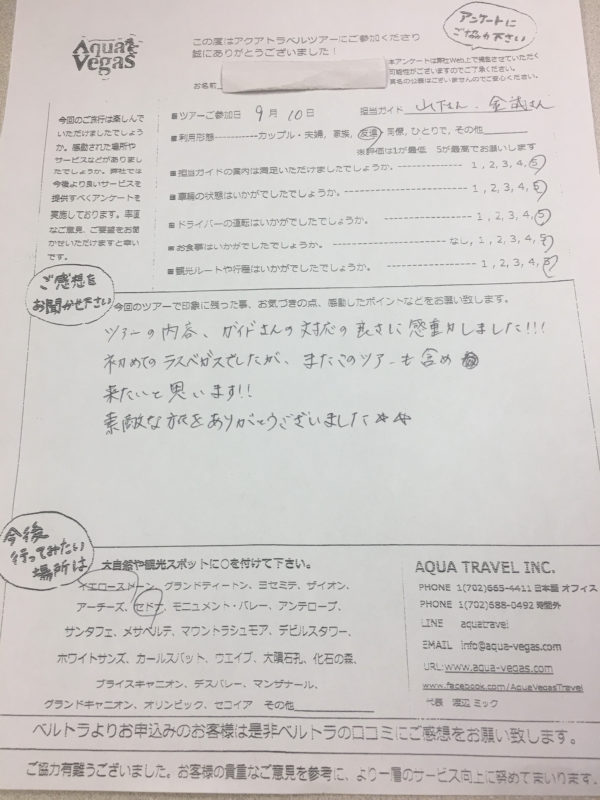 Aqua
Vegas
この度はアクアトラベルツアーにご参加くださり
誠にありがとうございました！
アンケートに
ご協力下さい
お名前
本アンケートは弊社Web上で掲載させていただく
可能性がございますのでご了承ください。
実名の公表はございませんのでご安心ください。
今回のご旅行は楽しんで
いただけましたでしょう
か。感動された場所や
サービスなどがありまし
たでしょうか。弊社では
今後より良いサービスを
提供すべくアンケートを
実施しております。率直
なご意見、ご要望をお聞
かせいただけますと幸い
です。
■ツアーご参加日 9月 10日 担当ガイド 山下さん、金武さん
■利用形態-----------カップル・夫婦, 家族, 友達, 同僚, ひとりで, その他
※評価は1が最低 5が最高でお願いします
■担当ガイドの案内は満足いただけましたでしょうか。---------------- 1 , 2, 3, 4, 5
■車輌の状態はいかがでしたでしょうか。---------------- 1 , 2, 3, 4, 5
■ドライバーの運転はいかがでしたでしょうか。---------------- 1 , 2, 3, 4, 5
■お食事はいかがでしたでしょうか。---------------- なし, 1, 2, 3, 4, 5
■観光ルートや行程はいかがでしたでしょうか。---------------- 1 , 2, 3, 4, 5
ご感想を
お聞かせ下さい
今回のツアーで印象に残った事、お気づきの点、感動したポイントなどをお願い致します。
ツアーの内容、ガイドさんの対応の良さに感動しました!!!
初めてのラスベガスでしたが、またこのツアーも含め
来たいと思います!!
素敵な旅をありがとうございました☆☆
今後
行ってみたい
場所は
大自然や観光スポットに○を付けて下さい。
イエローストーン, グランドティートン, ヨセミテ, ザイオン,
アーチーズ, セドナ, モニュメント・バレー, アンテロープ,
サンタフェ, メサベルデ, マウントラシュモア, デビルスタワー,
ホワイトサンズ, カールスバット, ウエイブ, 大隕石孔, 化石の森,
ブライスキャニオン, デスバレー, マンザナール,
グランドキャニオン, オリンピック, セコイア その他
AQUA TRAVEL INC.
PHONE 1(702)665-4411 日本語 オフィス
PHONE 1(702)688-0492 時間外
LINE aquatravel
EMAIL info@aqua-vegas.com
URL:www.aqua-vegas.com
www.facebook.com/AquaVegasTravel
代表 渡辺 ミック
ベルトラよりお申込みのお客様は是非ベルトラの口コミにご感想をお願い致します。
ご協力有難うございました。お客様の貴重なご意見を参考に、より一層のサービス向上に努めてまいります。